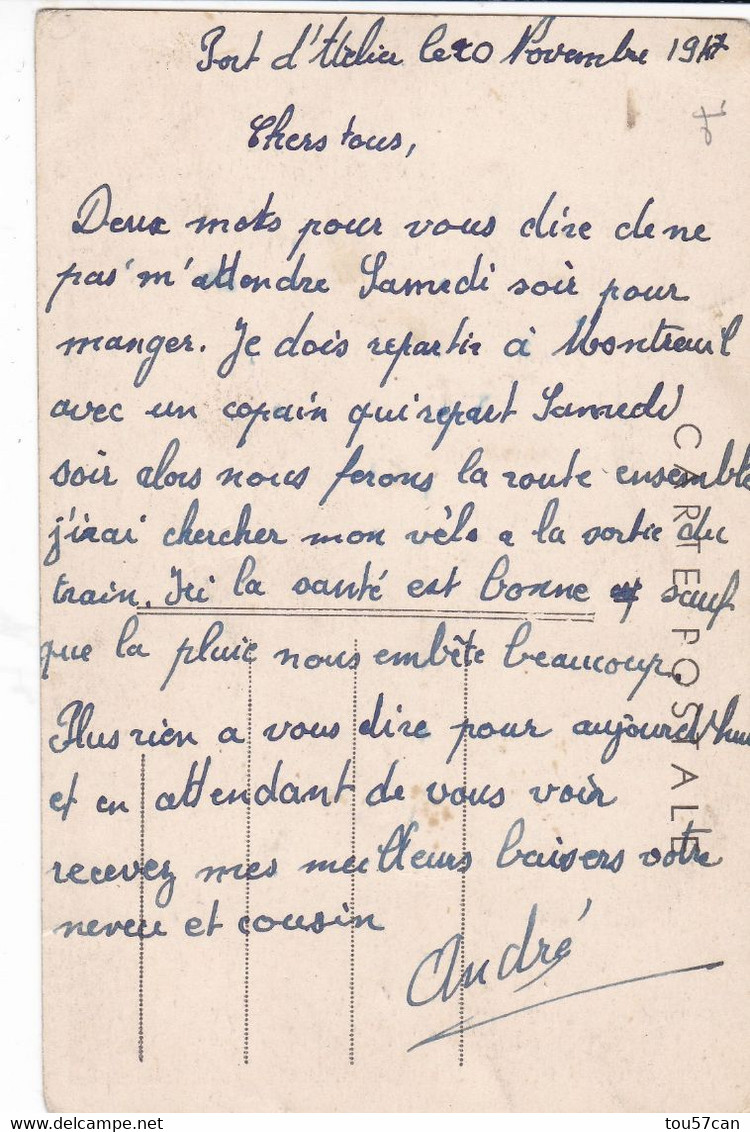 Port d'Atelier le 20 Novembre 1947
Chers tous,
Deux mots pour vous dire de ne
pas m'attendre Samedi soir pour
manger. Je dois repartir à Montreuil
avec un copain qui repart Samedi
soir alors nous ferons la route ensemble
j'irai chercher mon vélo a la sortie du
train. Ici la santé est bonne sauf
que la pluie nous embête beaucoup.
Plus rien a vous dire pour aujourd'hui
et en attendant de vous voir
recevez mes meilleurs baisers votre
neveu et cousin
André
CARTE POSTALE
tou57can